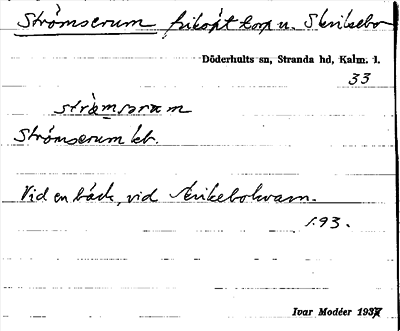 Strömserum friköpt torp u. Skrikebo
Döderhults sn, Stranda hd, Kalm. l.
33
Strömserum kb.
Vid en bäck, vid Skrikebokvarn.
193.
Ivar Modéer 1937